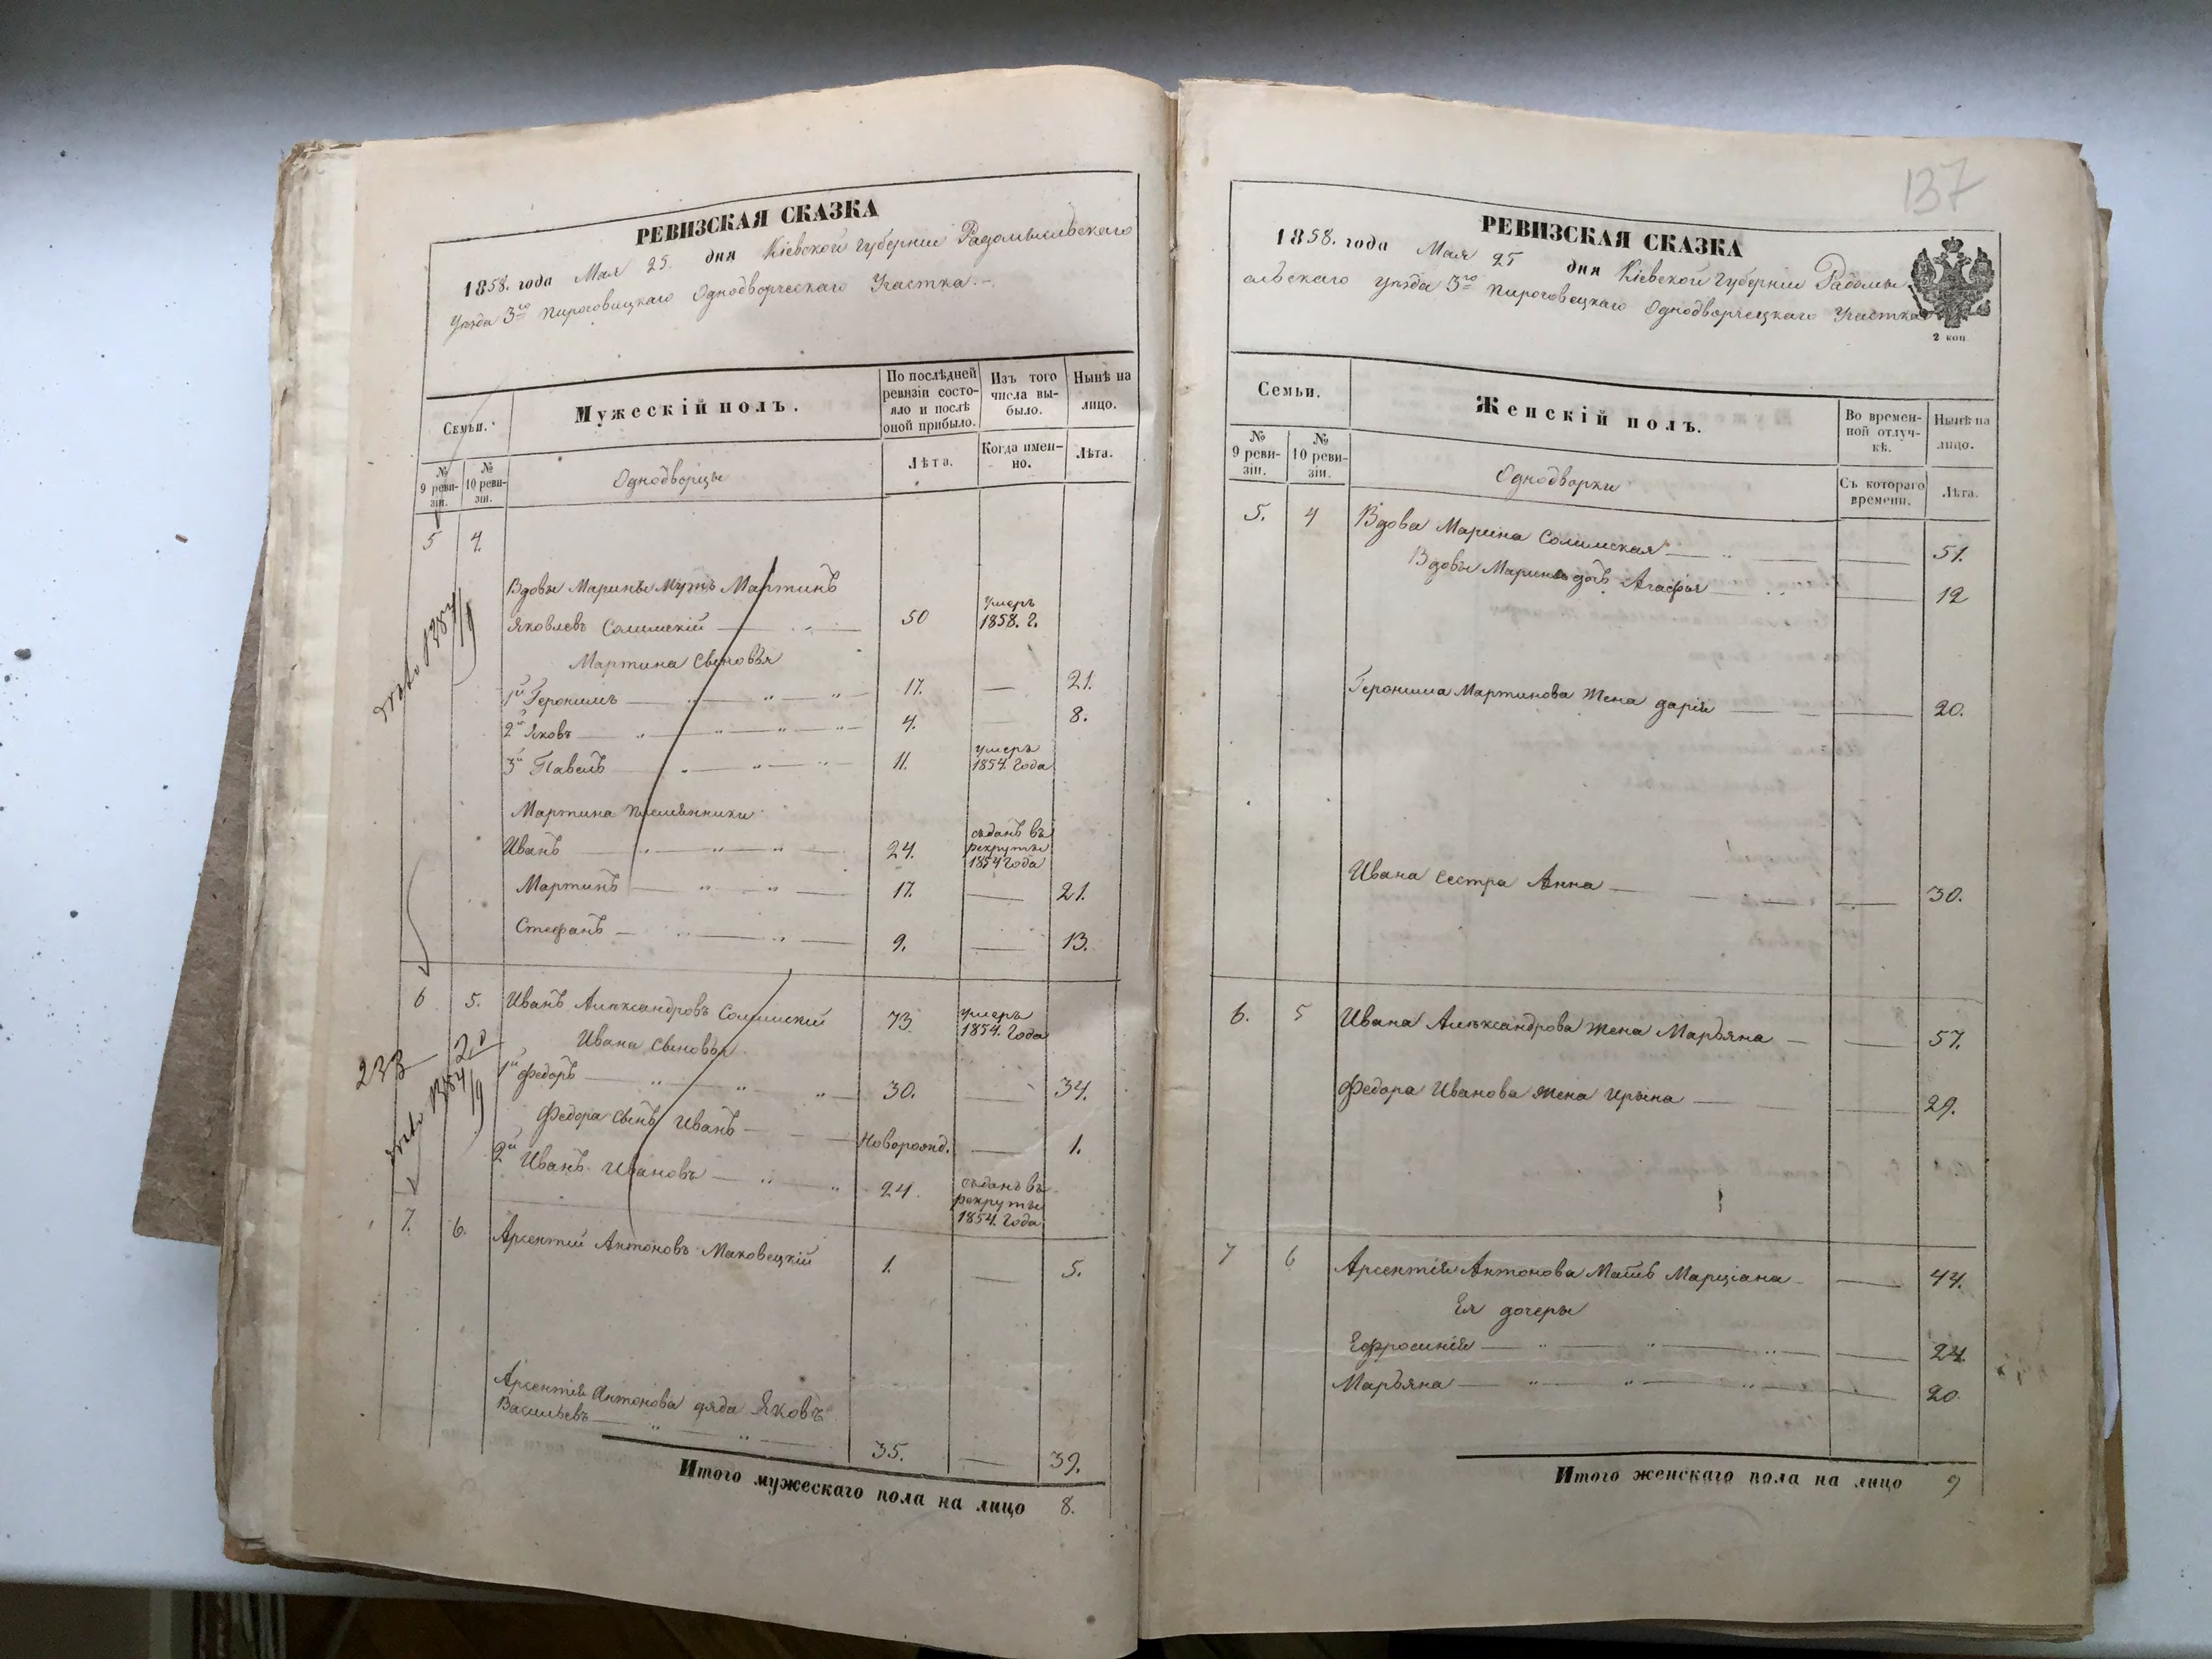 РЕВИЗСКАЯ СКАЗКА
1858. года Мая 25. дня Кіевской губерніи Радомысльскаго
Уѣзда 3го Пироговицкаго Однодворческаго Участка. –
Семьи.
Мужескій полъ.
По послѣдней ревизіи состояло и послѣ оной прибыло.
Изъ того числа выбыло.
Нынѣ на лицо.
№ 9 ревизіи.
№ 10 ревизіи.
Однодворцы
Лѣта.
Когда именно.
Лѣта.
5 4.
Вдовы Марины Мужъ Мартинъ
Яковлевъ Солимскій 50 умеръ 1858. г.
Мартина Сыновья
1й Геронимъ 17. — 21.
2й Яковъ 4. — 8.
3й Павелъ 11. умеръ 1854. года
Мартина племянники
Иванъ 24. сданъ въ рекруты 1854 года
Мартинъ 17. — 21.
Стефанъ 9. — 13.
6 5. Иванъ Александровъ Солимскій 73. умеръ 1854. года
Ивана Сыновья
1й Федоръ 30. — 34.
233
Федора Сынъ Иванъ Новорожд. — 1.
2й Иванъ Ивановъ 24. сданъ въ рекруты 1854. года
7. 6. Арсентій Антоновъ Маковецкій 1. — 5.
Арсентія Антонова дяда Яковъ
Васильевъ 35. — 39.
Итого мужескаго пола на лицо 8.
137
РЕВИЗСКАЯ СКАЗКА
1858. года Мая 25 дня Кіевской Губерніи Радомы
сльскаго уѣзда 3го Пироговецкаго Однодворческаго Участка
2 коп
Семьи.
Женскій полъ.
Во временной отлучкѣ.
Нынѣ на лицо.
№ 9 ревизіи.
№ 10 ревизіи.
Однодворки
Съ котораго времени.
Лѣта.
5. 4 Вдова Марина Солимская — 51.
Вдовы Марины дочь Агафья — 12
Геронима Мартинова Жена дарія — 20.
Ивана сестра Анна — 30.
6. 5 Ивана Александрова Жена Марьяна — 57.
Федора Иванова Жена Ирына — 29.
7 6 Арсентія Антонова Мать Марціана — 44.
Ея дочеры
Ефросинія — 24.
Марьяна — 20.
Итого женскаго пола на лицо 9